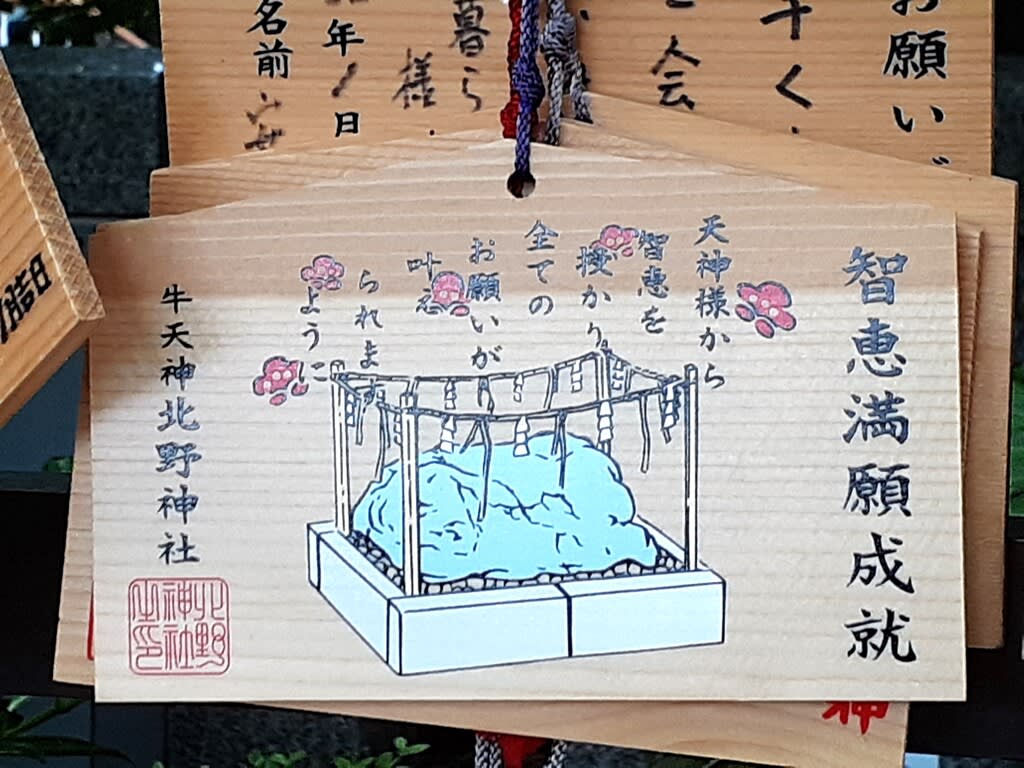 智恵満願成就
天神様から
智恵を
授かり
全ての
お願いが
叶え
られま
ように
牛天神北野神社
北野
神社
之印
お願い
名前
年
日
様
暮ら
神